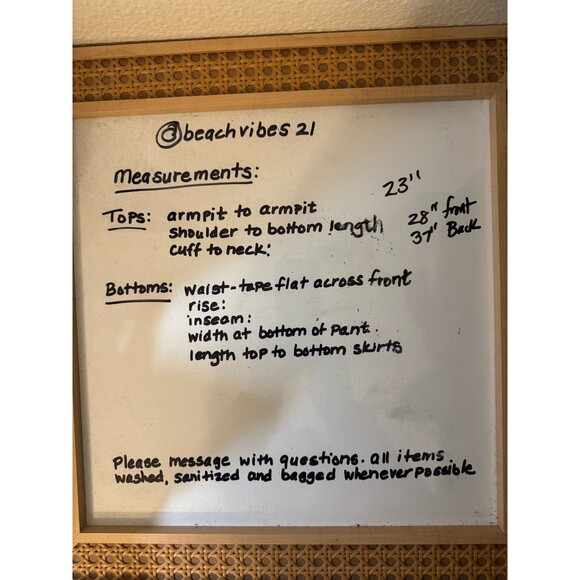 @beachvibes 21
Measurements:
Tops: armpit to armpit 23"
shoulder to bottom length 28" front
37" Back
cuff to neck:
Bottoms: waist-tape flat across front
rise:
inseam:
width at bottom of pant.
length top to bottom skirts
Please message with questions. all items
washed, sanitized and bagged whenever possible